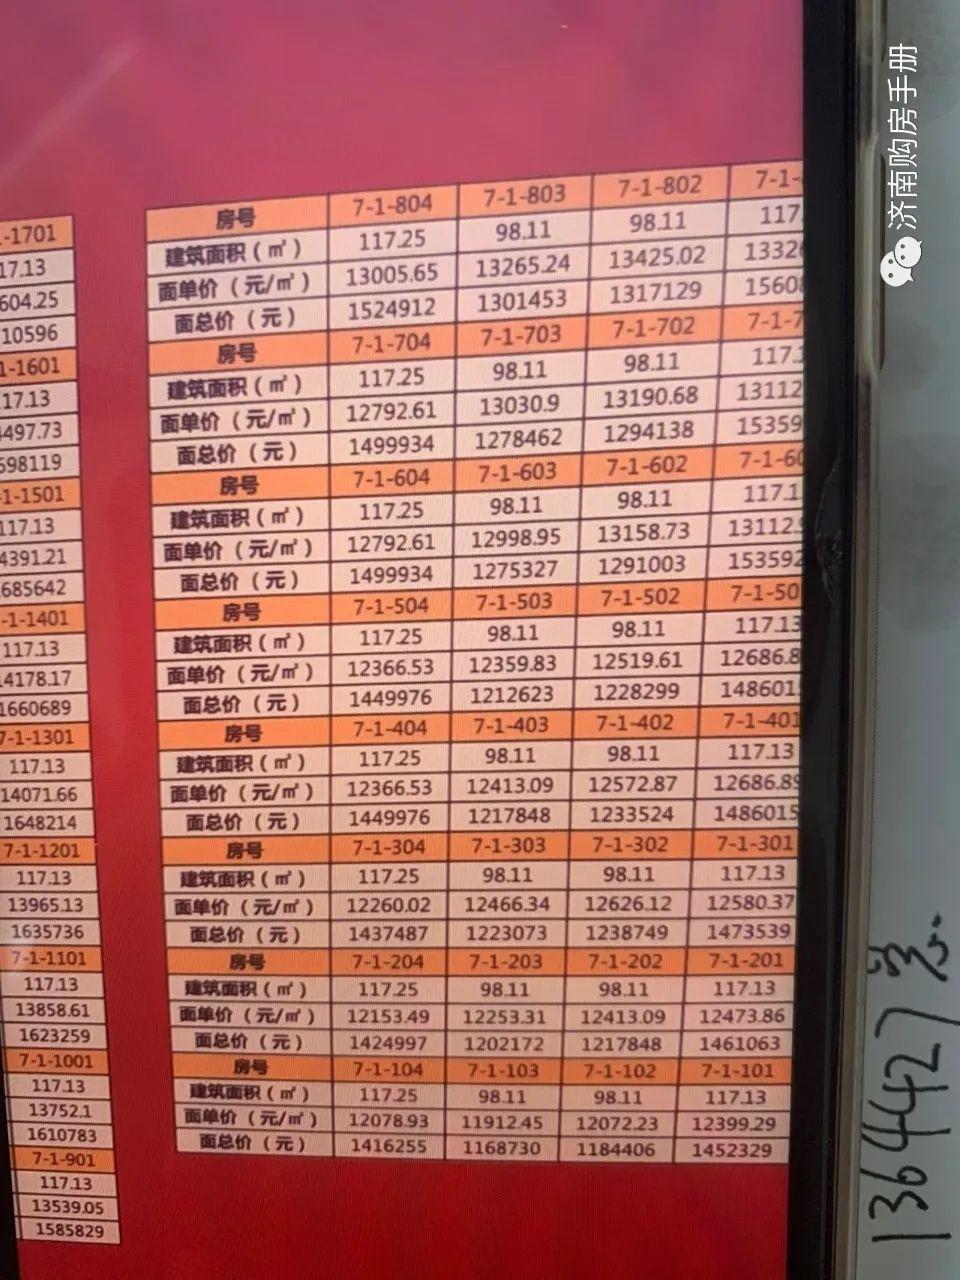 济南购房手册
-1701
17.13
604.25
10596
1-1601
17.13
4497.73
698119
-1-1501
117.13
4391.21
685642
-1-1401
117.13
14178.17
1660689
7-1-1301
117.13
14071.66
1648214
7-1-1201
117.13
13965.13
1635736
7-1-1101
117.13
13858.61
1623259
7-1-1001
117.13
13752.1
1610783
7-1-901
117.13
13539.05
1585829
房号 7-1-804 7-1-803 7-1-802 7-1-
建筑面积（㎡） 117.25 98.11 98.11 117.
面单价（元/㎡） 13005.65 13265.24 13425.02 1332
面总价（元） 1524912 1301453 1317129 1560
房号 7-1-704 7-1-703 7-1-702 7-1-7
建筑面积（㎡） 117.25 98.11 98.11 117.1
面单价（元/㎡） 12792.61 13030.9 13190.68 13112
面总价（元） 1499934 1278462 1294138 15359
房号 7-1-604 7-1-603 7-1-602 7-1-60
建筑面积（㎡） 117.25 98.11 98.11 117.1
面单价（元/㎡） 12792.61 12998.95 13158.73 13112.
面总价（元） 1499934 1275327 1291003 153592
房号 7-1-504 7-1-503 7-1-502 7-1-50
建筑面积（㎡） 117.25 98.11 98.11 117.13
面单价（元/㎡） 12366.53 12359.83 12519.61 12686.8
面总价（元） 1449976 1212623 1228299 148601
房号 7-1-404 7-1-403 7-1-402 7-1-401
建筑面积（㎡） 117.25 98.11 98.11 117.13
面单价（元/㎡） 12366.53 12413.09 12572.87 12686.89
面总价（元） 1449976 1217848 1233524 1486015
房号 7-1-304 7-1-303 7-1-302 7-1-301
建筑面积（㎡） 117.25 98.11 98.11 117.13
面单价（元/㎡） 12260.02 12466.34 12626.12 12580.37
面总价（元） 1437487 1223073 1238749 1473539
房号 7-1-204 7-1-203 7-1-202 7-1-201
建筑面积（㎡） 117.25 98.11 98.11 117.13
面单价（元/㎡） 12153.49 12253.31 12413.09 12473.86
面总价（元） 1424997 1202172 1217848 1461063
房号 7-1-104 7-1-103 7-1-102 7-1-101
建筑面积（㎡） 117.25 98.11 98.11 117.13
面单价（元/㎡） 12078.93 11912.45 12072.23 12399.29
面总价（元） 1416255 1168730 1184406 1452329
1364427